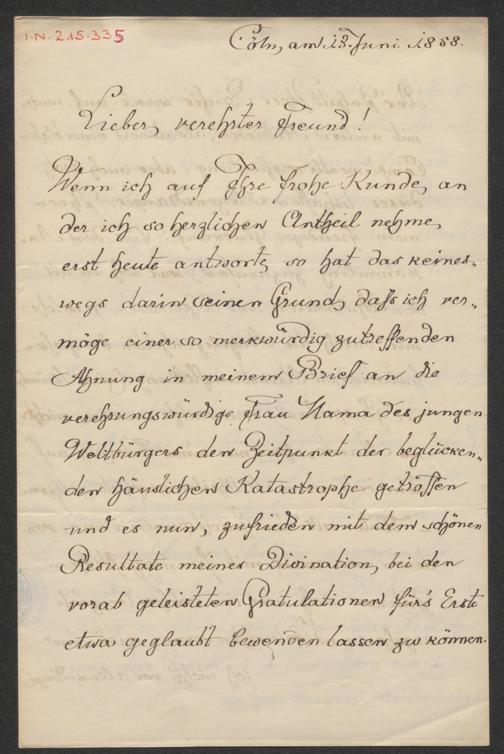 I.N. 215.335
Cöln, am 13. Juni 1858.
Lieber, verehrter Freund!
Wenn ich auf Ihre frohe Kunde, an
der ich so herzlichen Antheil nehme,
erst heute antworte, so hat das keines-
wegs darin seinen Grund, daß ich ver-
möge einer so merkwürdig zutreffenden
Ahnung in meinem Brief an die
verehrungswürdige Frau Mama des jungen
Weltbürgers den Zeitpunkt der beglücken-
den häuslichen Katastrophe getroffen
und es nun, zufrieden mit dem schönen
Resultate meiner Divination, bei den
vorab geleisteten Gratulationen für's Erste
etwa geglaubt bewenden lassen zu können.